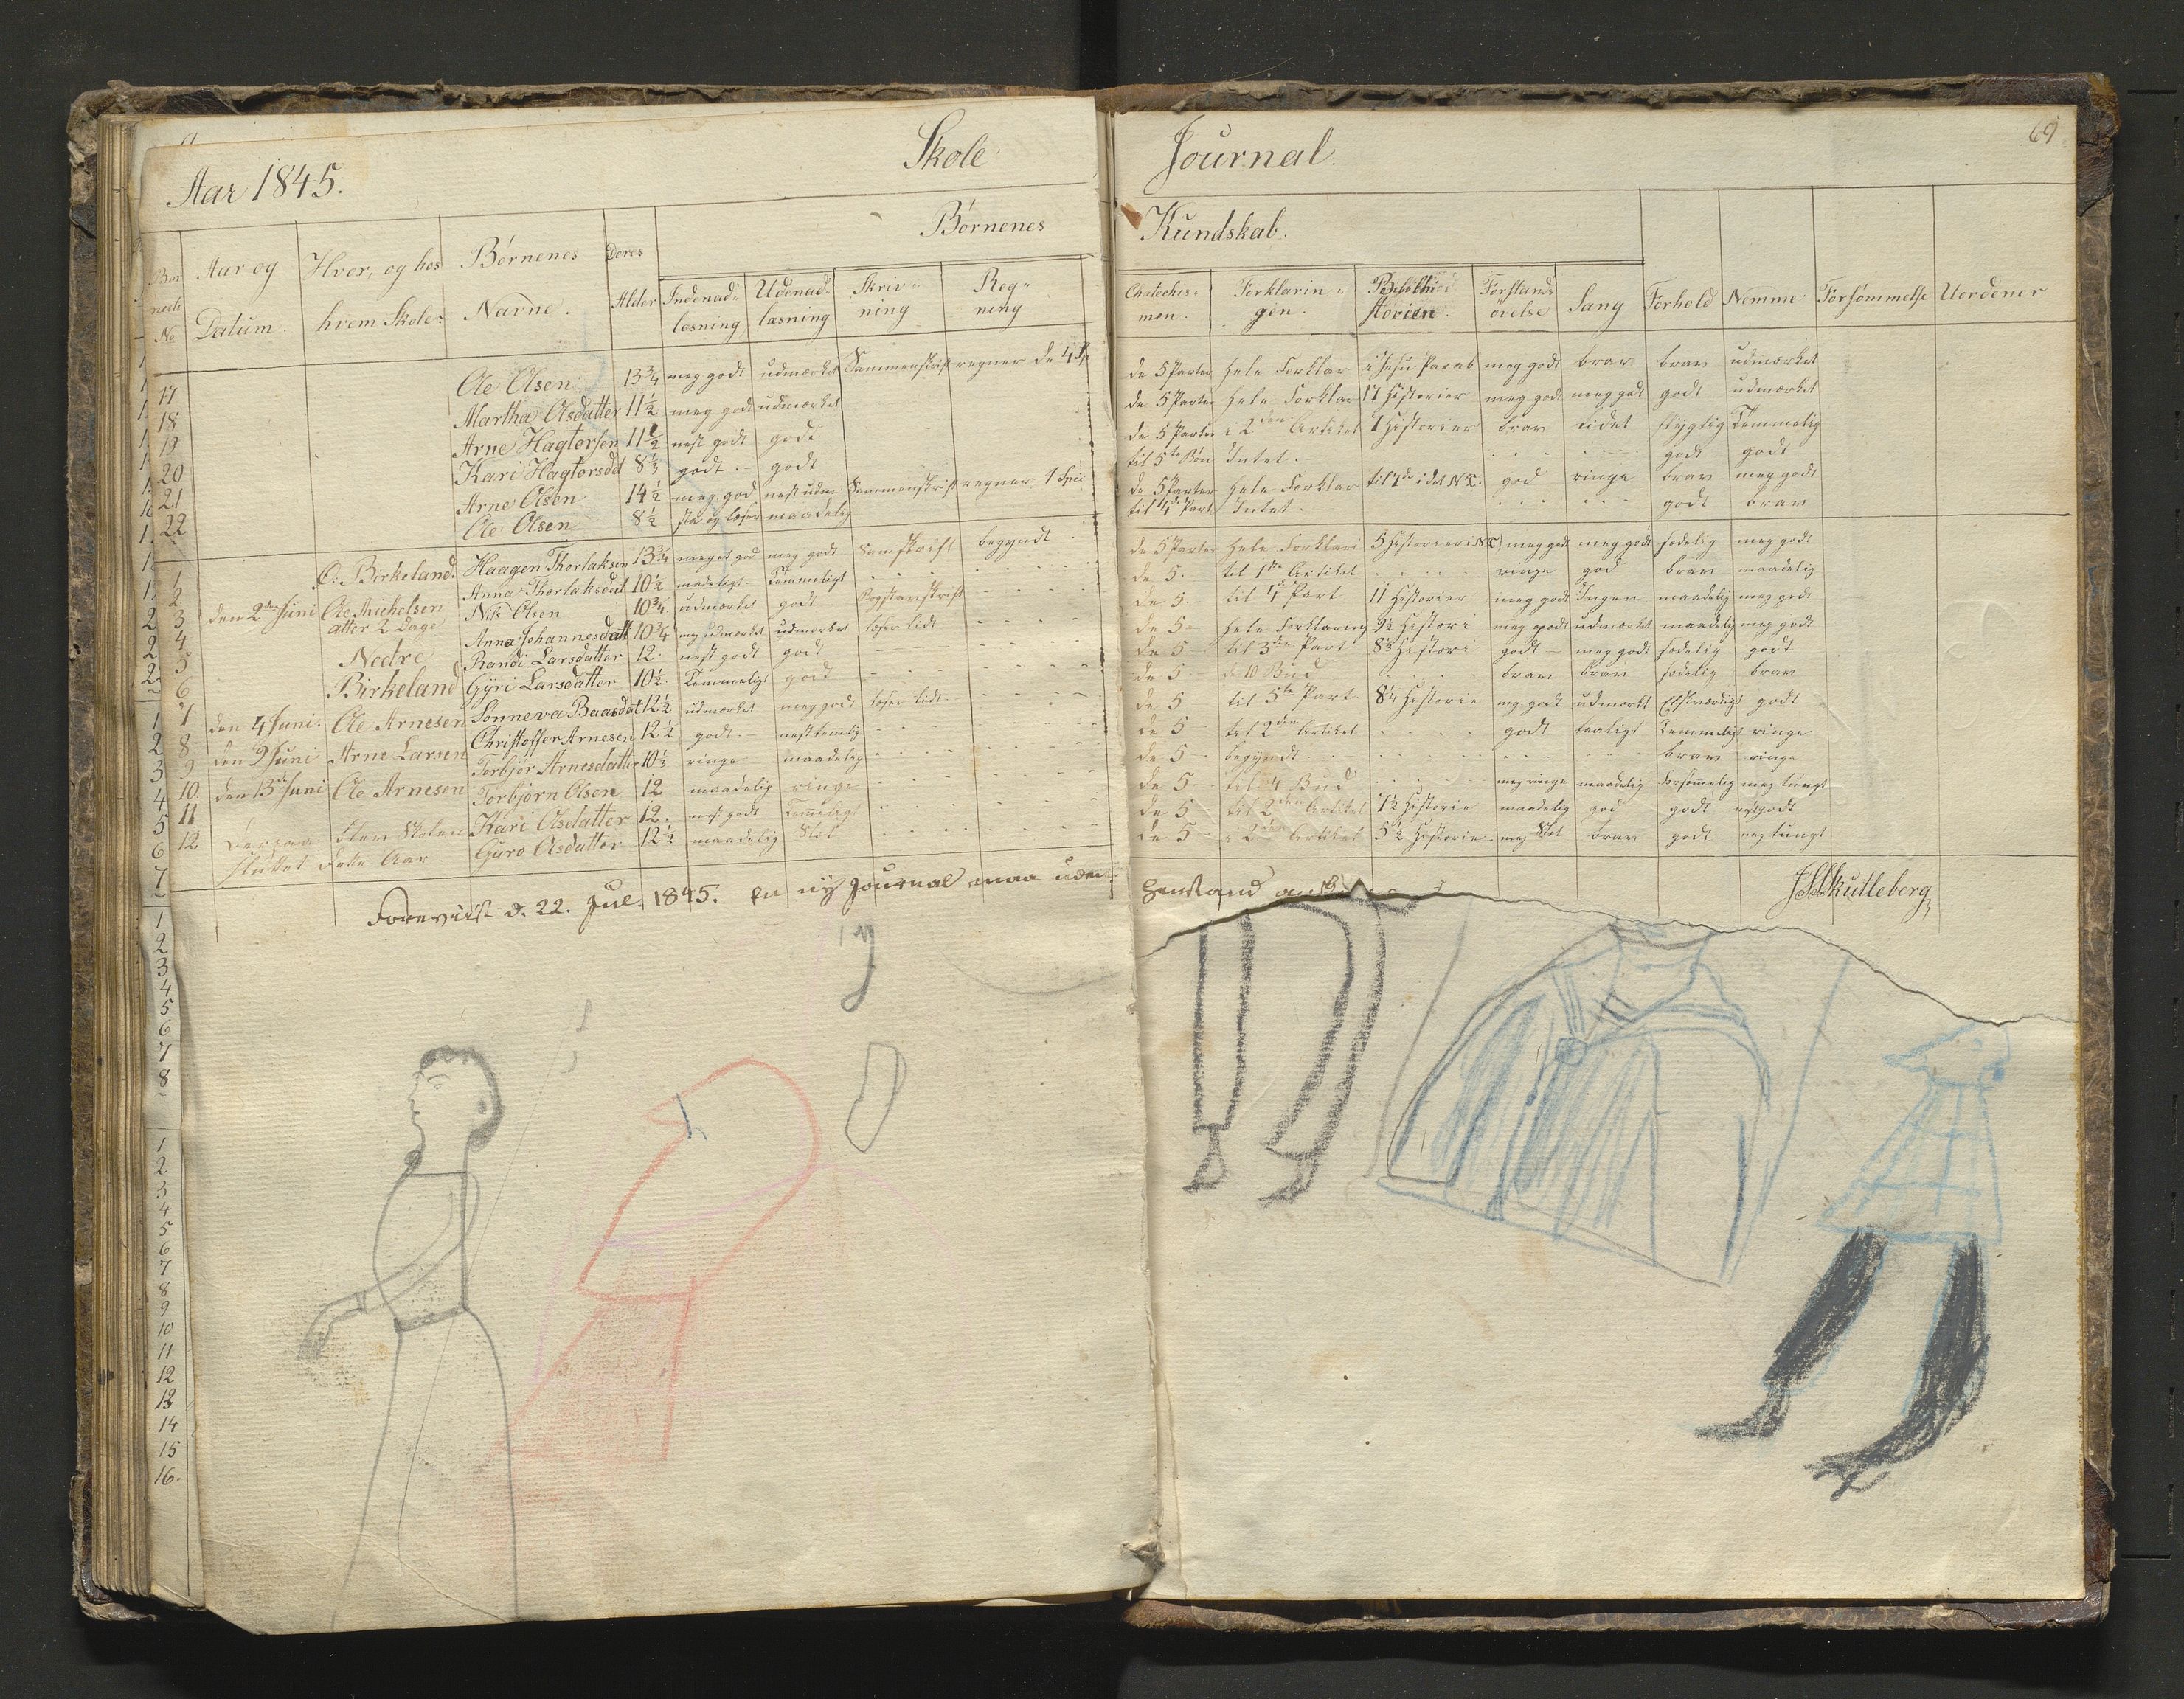 Aar 1845.
Skole
Journal.
69
Børnenes
Kundskab.
Bør
nenes
No
Aar og
Datum.
Hvor, og hos
hvem Skole:
Børnenes
Navne.
Deres
Alder
Indenad
læsning
Udenad
læsning
Skriv
ning
Reg
ning
Chatechis
men.
Forklarin
gen.
storien.
Forstands
øvelse
Sang
Forhold
Nemme
Forsømmelse
Uordener
17 Ole Olsen 13¾ meg godt udmærket Sammenskrift regner de 4 Sp de 5 Parter hele Forklar i Jesu Parab meg godt brav brav udmærket
18 Martha Olsdatter 11½ meg godt udmærket de 5 Parter hele Forklar 11 Historier meg godt meg godt godt udmærket
19 Arne Hagtorsen 11½ nest godt godt de 5 Parter i 2den Artikel 1 Historier brav lidet flygtig Temmelig
20 Kari Hagtorsdd 8⅓ godt godt til 5te Bøn Intet godt godt
21 Arne Olsen 14½ meg. god nest udm Sammenskrift regner 1 Spec de 5 Parter hele Forklar til 4de i det N T. god ringe brav meg godt
22 Ole Olsen 8½ sta og læser maadelig til 4de Part Intet godt brav
1 Ø. Birkeland. Haagen Thorlaksen 13¾ meget god meg godt Samskrift begyndt de 5 Parter hele Forklari 5 Historier i N T meg godt meg godt sædelig meg godt
2 Anna Thorlaksdat 10½ madeligt Temmeligt de 5. til 1de Artikel ringe god brav maadelig
3 den 2den Juni Ole Michelsen Nils Olsen 10¾ udmærket godt Bogstavskrift de 5. til 4 Part 11 Historier meg godt Ingen maadelig meg godt
atter 2 Dage
4 Anna Johannesdatt 10¾ meg udmærket udmærket læser lidt de 5 hele Forklaring 9½ Histori meg godt udmærket maadelig meg godt
5 Nedre Randi Larsdatter 12. nest godt god de 5 til 3die Part 8½ Histori godt meg godt sædelig godt
6 Birkeland Gÿri Larsdatter 10½. Temmeligt godt de 5 de 10 Bud brav brav sædelig brav
7 den 4 Juni. Ole Arnesen Sønneva Baardsdat 12½ udmærket meg godt læser lidt de 5 til 5te Part 8¼ Historie mg. godt udmærkt Elskværdigt godt
8 Christoffer Arnesen 12½ godt nest temmlig de 5 til 2den Artikel godt taaligt Temmeligt ringe
9 den 9 Juni Arne Larsen Torbjør Arnesdatter 10½ ringe maadelig de 5 begyndt brav ringe
10. den 13de Juni Ole Arnesen Torbjørn Olsen 12 maadelig ringe de 5. til 4 Bud meg ringe maadelig forsømmelig meg tungt
11 Kari Olsdatter 12. nest godt Temmelig de 5 til 2den Artikel 7½ Historie maadelig god godt nest godt
12 Derpaa blev Skolen Guro Olsdatter 12½ maadelig Slet de 5 i 2den Artikel 5½ Historie meg Slet brav godt meg tungt
sluttet dette Aar.
Foreviist d. 22. Jul. 1845. En ny Journal maa uden
Henstand
Skutleberg
1
2
3
4
5
6
7
8
1
2
3
4
5
6
7
8
9
10
11
12
13
14
15
16.